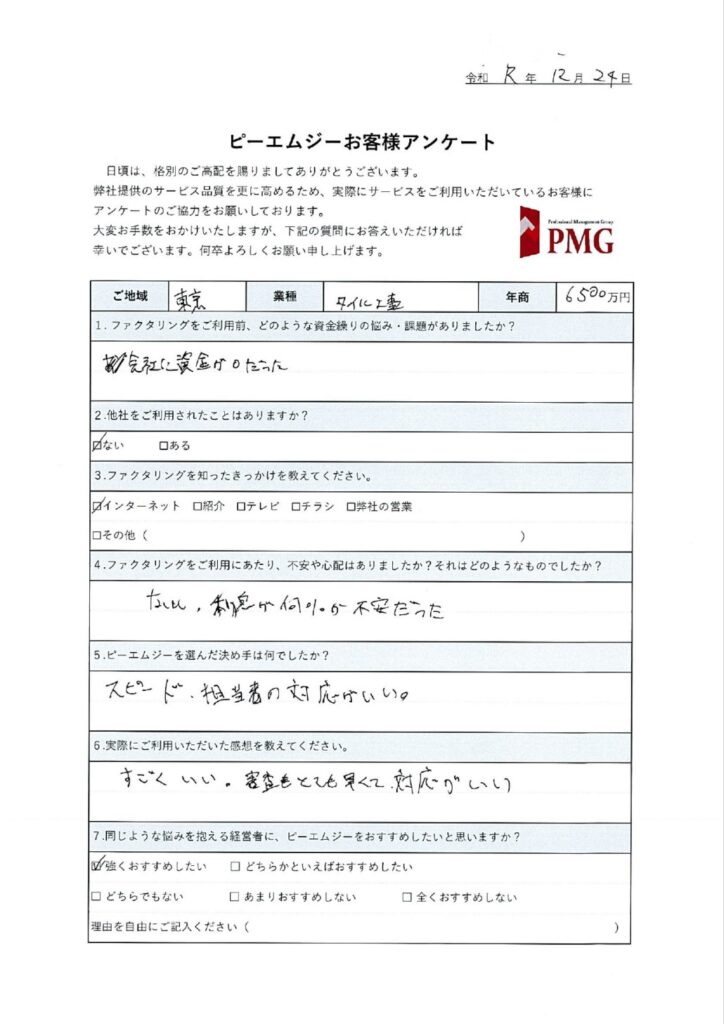 令和 R 年 12 月 24 日
ピーエムジーお客様アンケート
日頃は、格別のご高配を賜りましてありがとうございます。
弊社提供のサービス品質を更に高めるため、実際にサービスをご利用いただいているお客様に
アンケートのご協力をお願いしております。
大変お手数をおかけいたしますが、下記の質問にお答えいただければ
幸いでございます。何卒よろしくお願い申し上げます。
Professional Management Group
PMG
ご地域 東京 業種 タイル工事 年商 6500万円
1.ファクタリングをご利用前、どのような資金繰りの悩み・課題がありましたか？
会社に資金が0だった
2.他社をご利用されたことはありますか？
☑ない □ある
3.ファクタリングを知ったきっかけを教えてください。
☑インターネット □紹介 □テレビ □チラシ □弊社の営業
□その他（ ）
4.ファクタリングをご利用にあたり、不安や心配はありましたか？それはどのようなものでしたか？
利息が何%か不安だった
5.ピーエムジーを選んだ決め手は何でしたか？
スピード、担当者の対応がいい。
6.実際にご利用いただいた感想を教えてください。
すごくいい。審査もとても早くて、対応がいい
7.同じような悩みを抱える経営者に、ピーエムジーをおすすめしたいと思いますか？
☑強くおすすめしたい □どちらかといえばおすすめしたい
□どちらでもない □あまりおすすめしない □全くおすすめしない
理由を自由にご記入ください（ ）